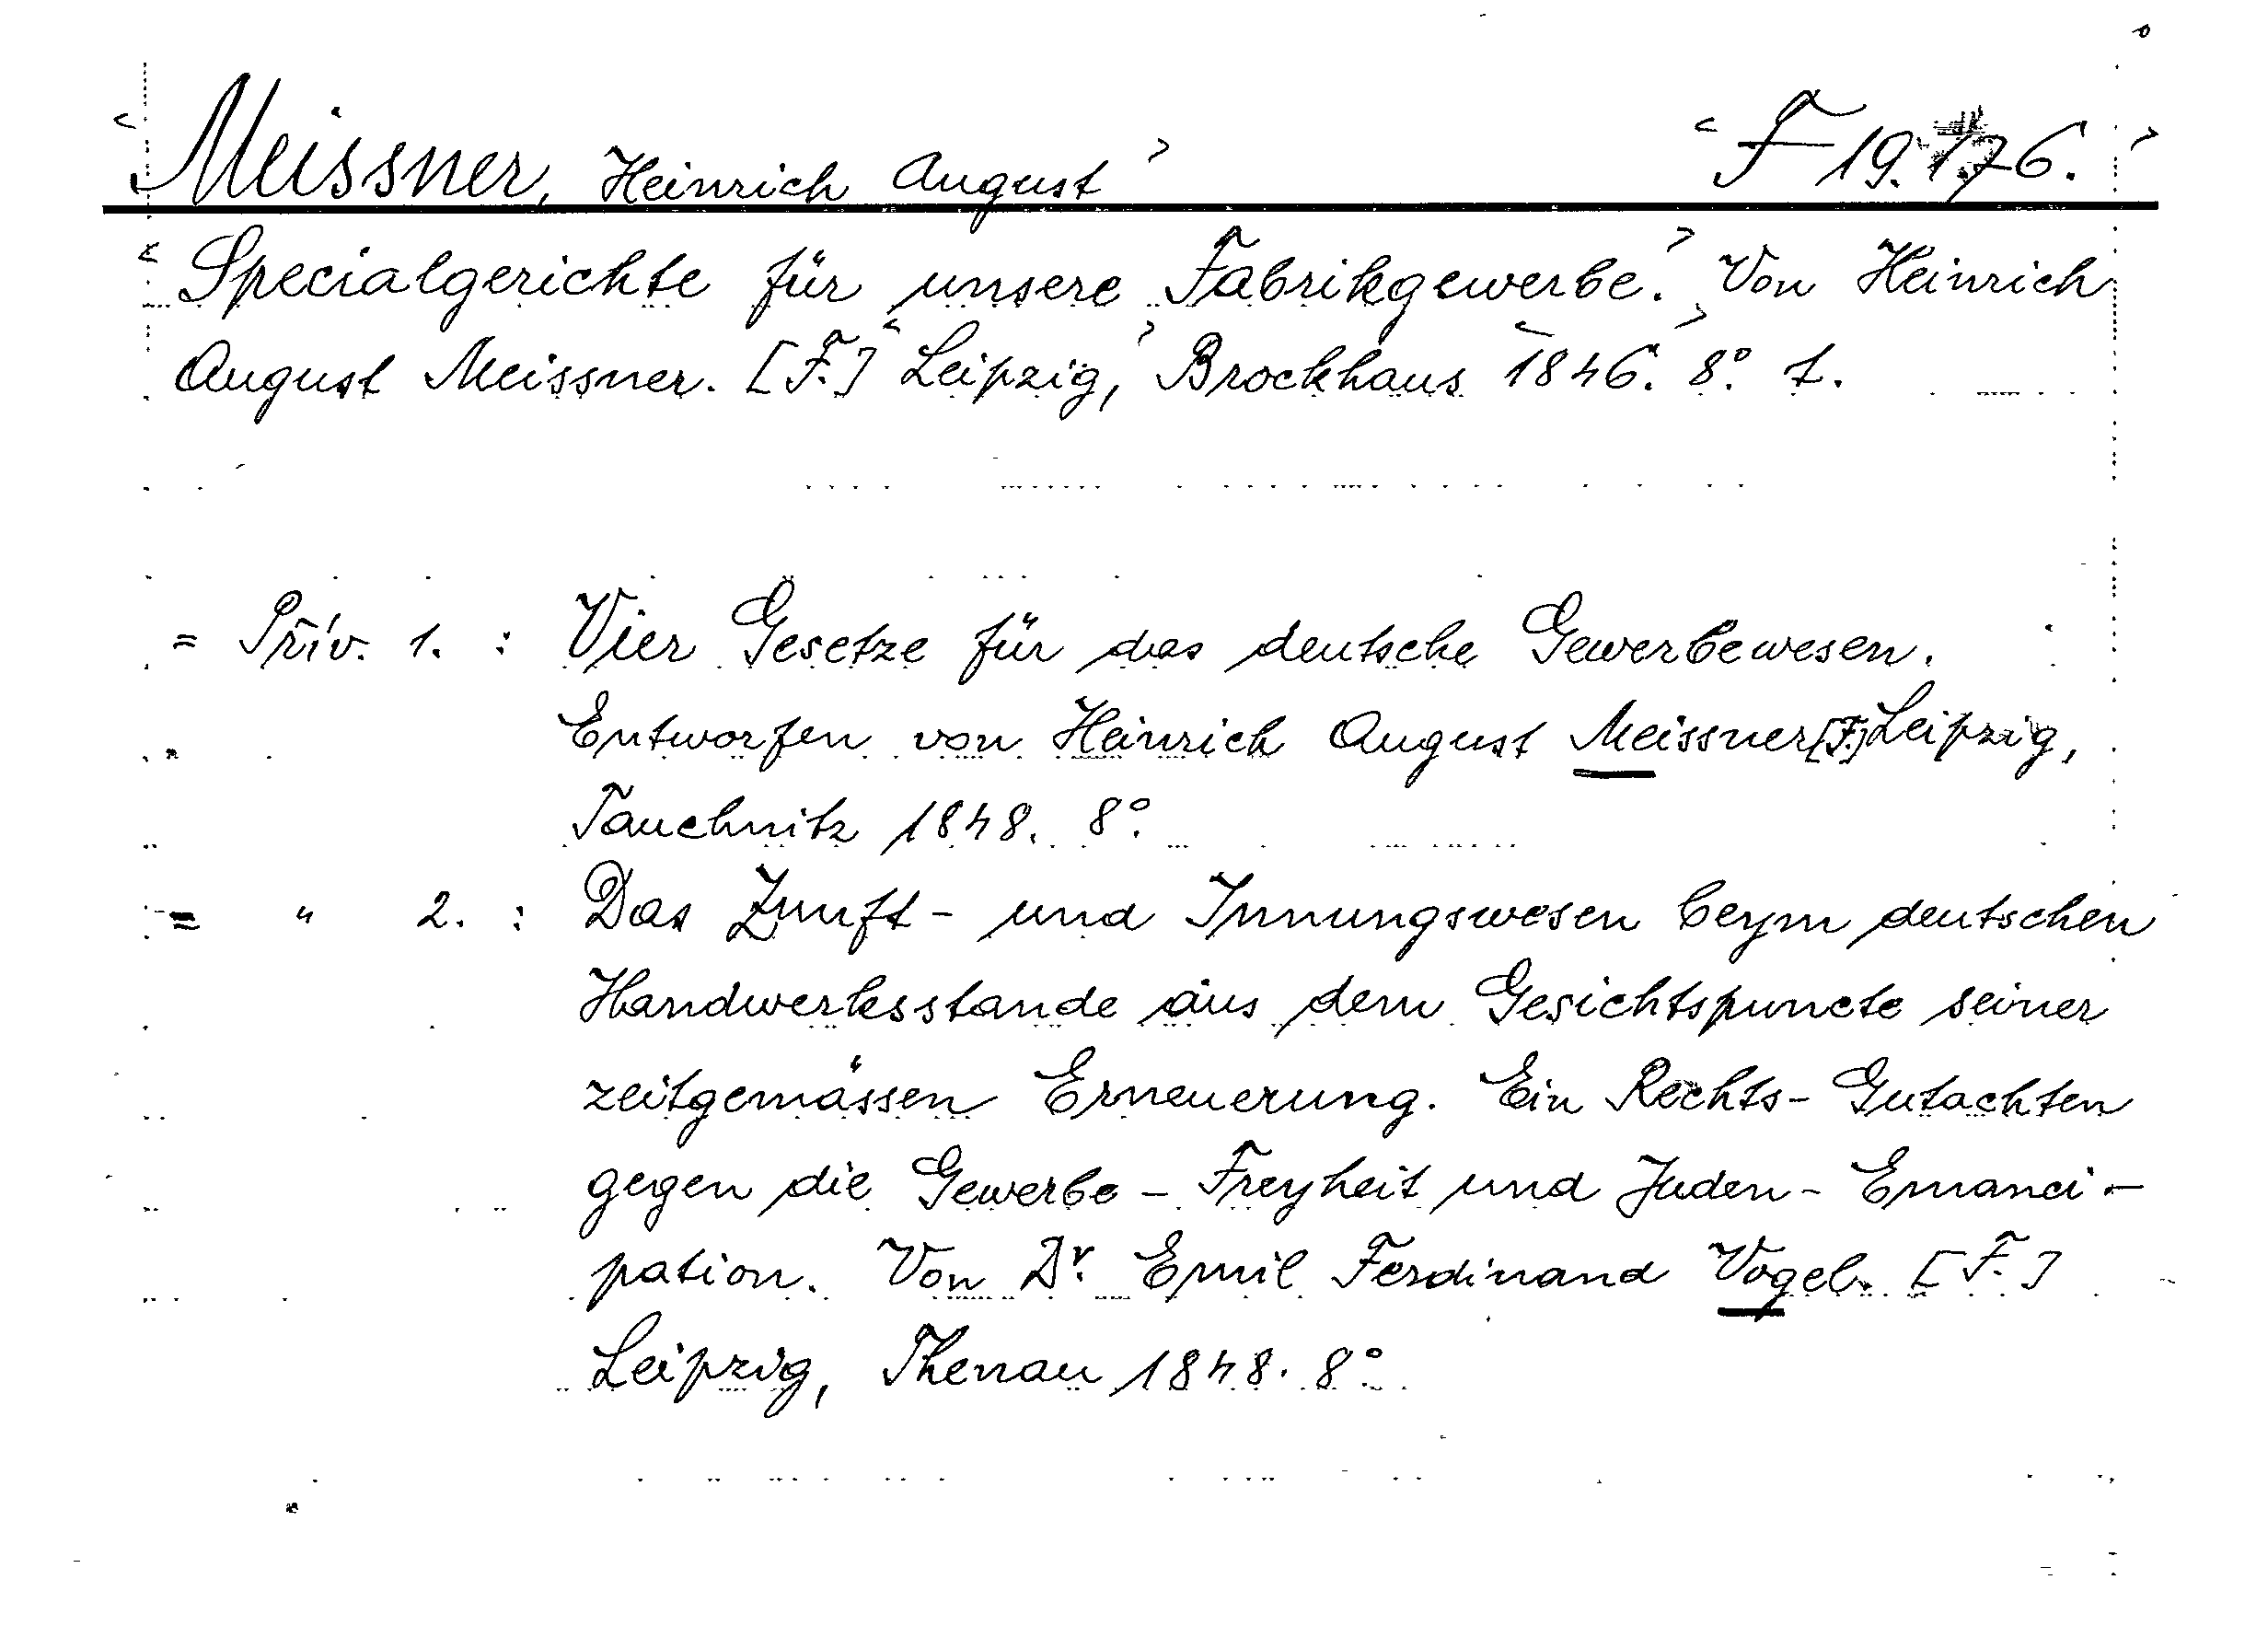 <Meissner, Heinrich August> <F 19.176.>
<Specialgerichte für unsere Fabrikgewerbe.> Von Heinrich
August Meissner. [F.] <Leipzig,> Brockhaus <1846.> 8°. 1.
= Priv. 1. : Vier Gesetze für das deutsche Gewerbewesen.
Entworfen von Heinrich August Meissner [F.] Leipzig,
Tauchnitz 1848. 8°.
= " 2. : Das Zunft- und Innungswesen beym deutschen
Handwerksstande aus dem Gesichtspuncte seiner
zeitgemässen Erneuerung. Ein Rechts-Gutachten
gegen die Gewerbe-Freyheit und Juden-Emanci-
pation. Von Dr. Emil Ferdinand Vogel. [F.]
Leipzig, Thenau 1848. 8°.